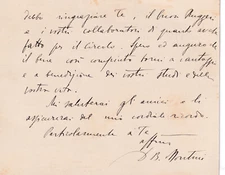 debbo ringraziare te, il buon Ruggeri
e i vostri collaboratori di quanto avete
fatto per il Circolo. Spero ed auguro che
il bene così compiuto torni a vantaggio
e a benedizione dei vostri studi e della
vostra vita.
Mi saluterai gli amici e li
assicurerai del mio cordiale ricordo.
Particolarmente a te
aff.mo
G B. Montini